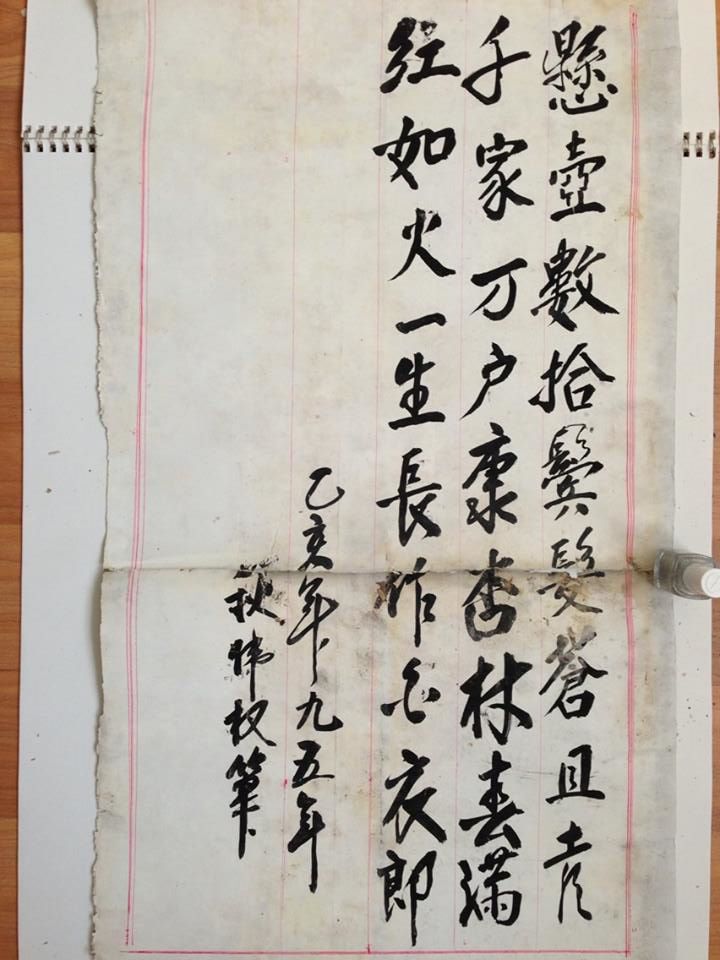 懸壺數拾鬢髮蒼且喜
千家万户康杏林春滿
红如火一生長作白衣郎
乙亥年九五年
权筆